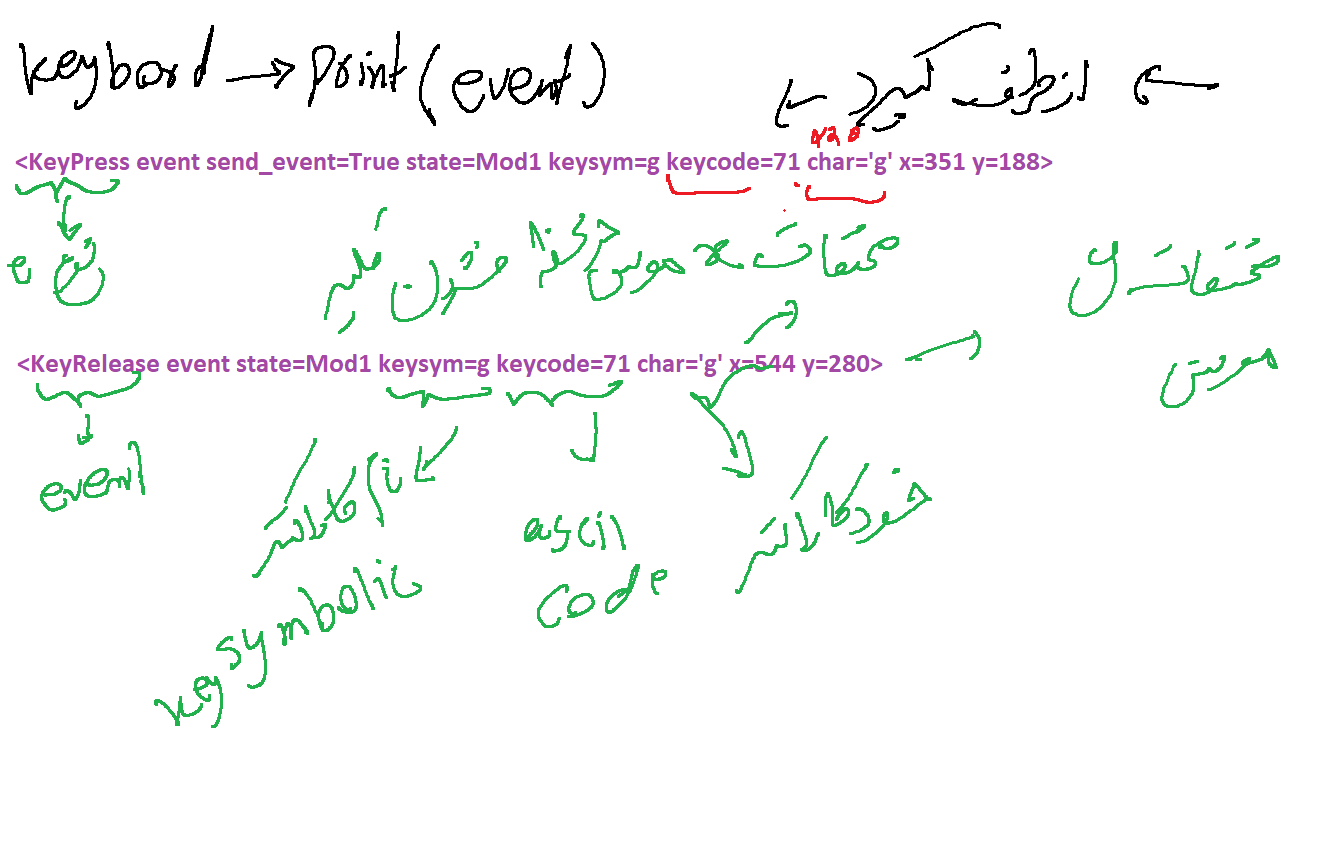 keybord → print(event) ← از طرف کیبرد ←
<KeyPress event send_event=True state=Mod1 keysym=g keycode=71 char='g' x=351 y=188>
نوع e
مختصات x موس در هنگام فشردن کلید
مختصات y
موس
<KeyRelease event state=Mod1 keysym=g keycode=71 char='g' x=544 y=280>
event
کاراکتر
key symbolic
ascii
code
خود کاراکتر